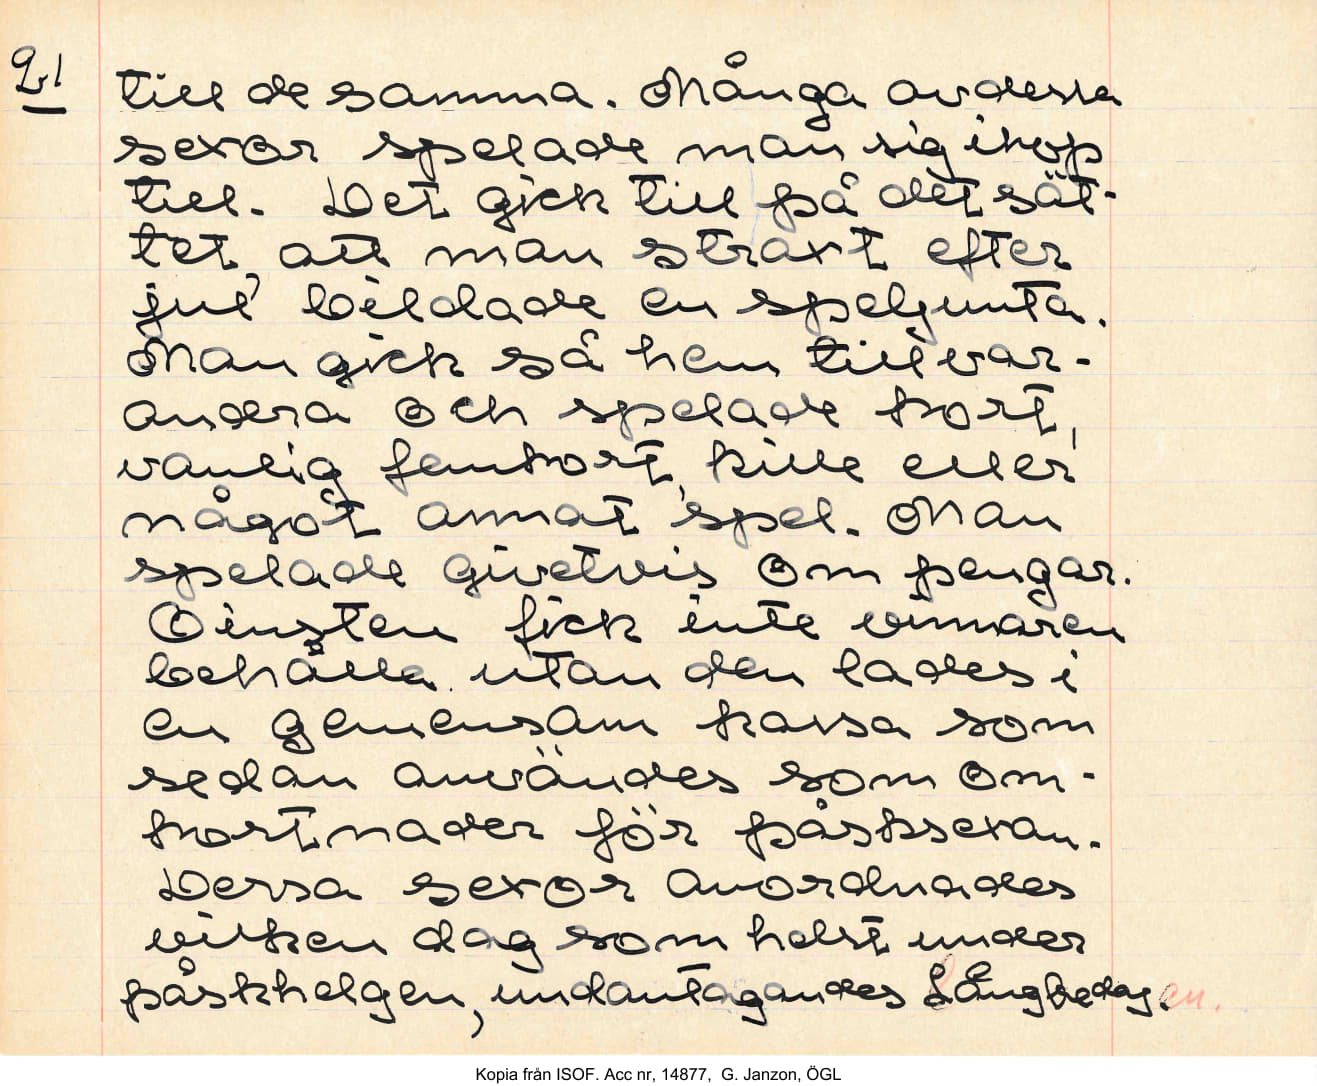 till de samma. Många av dessa
sexor spelade man sig ihop
till. Det gick till på det sät-
tet, att man straxt efter
jul bildade en speljunta.
Man gick så hem till var-
andra och spelade kort,
vanlig femkort, kille eller
något annat spel. Man
spelade givetvis om pengar.
Vinsten fick inte vinnaren
behålla utan den lades i
en gemensam kassa som
sedan användes som om-
kostnader för påsksexan.
Dessa sexor anordnades
vilken dag som helst under
påskhelgen, undantagandes Långfredagen.
Kopia från ISOF. Acc nr, 14877, G. Janzon, ÖGL